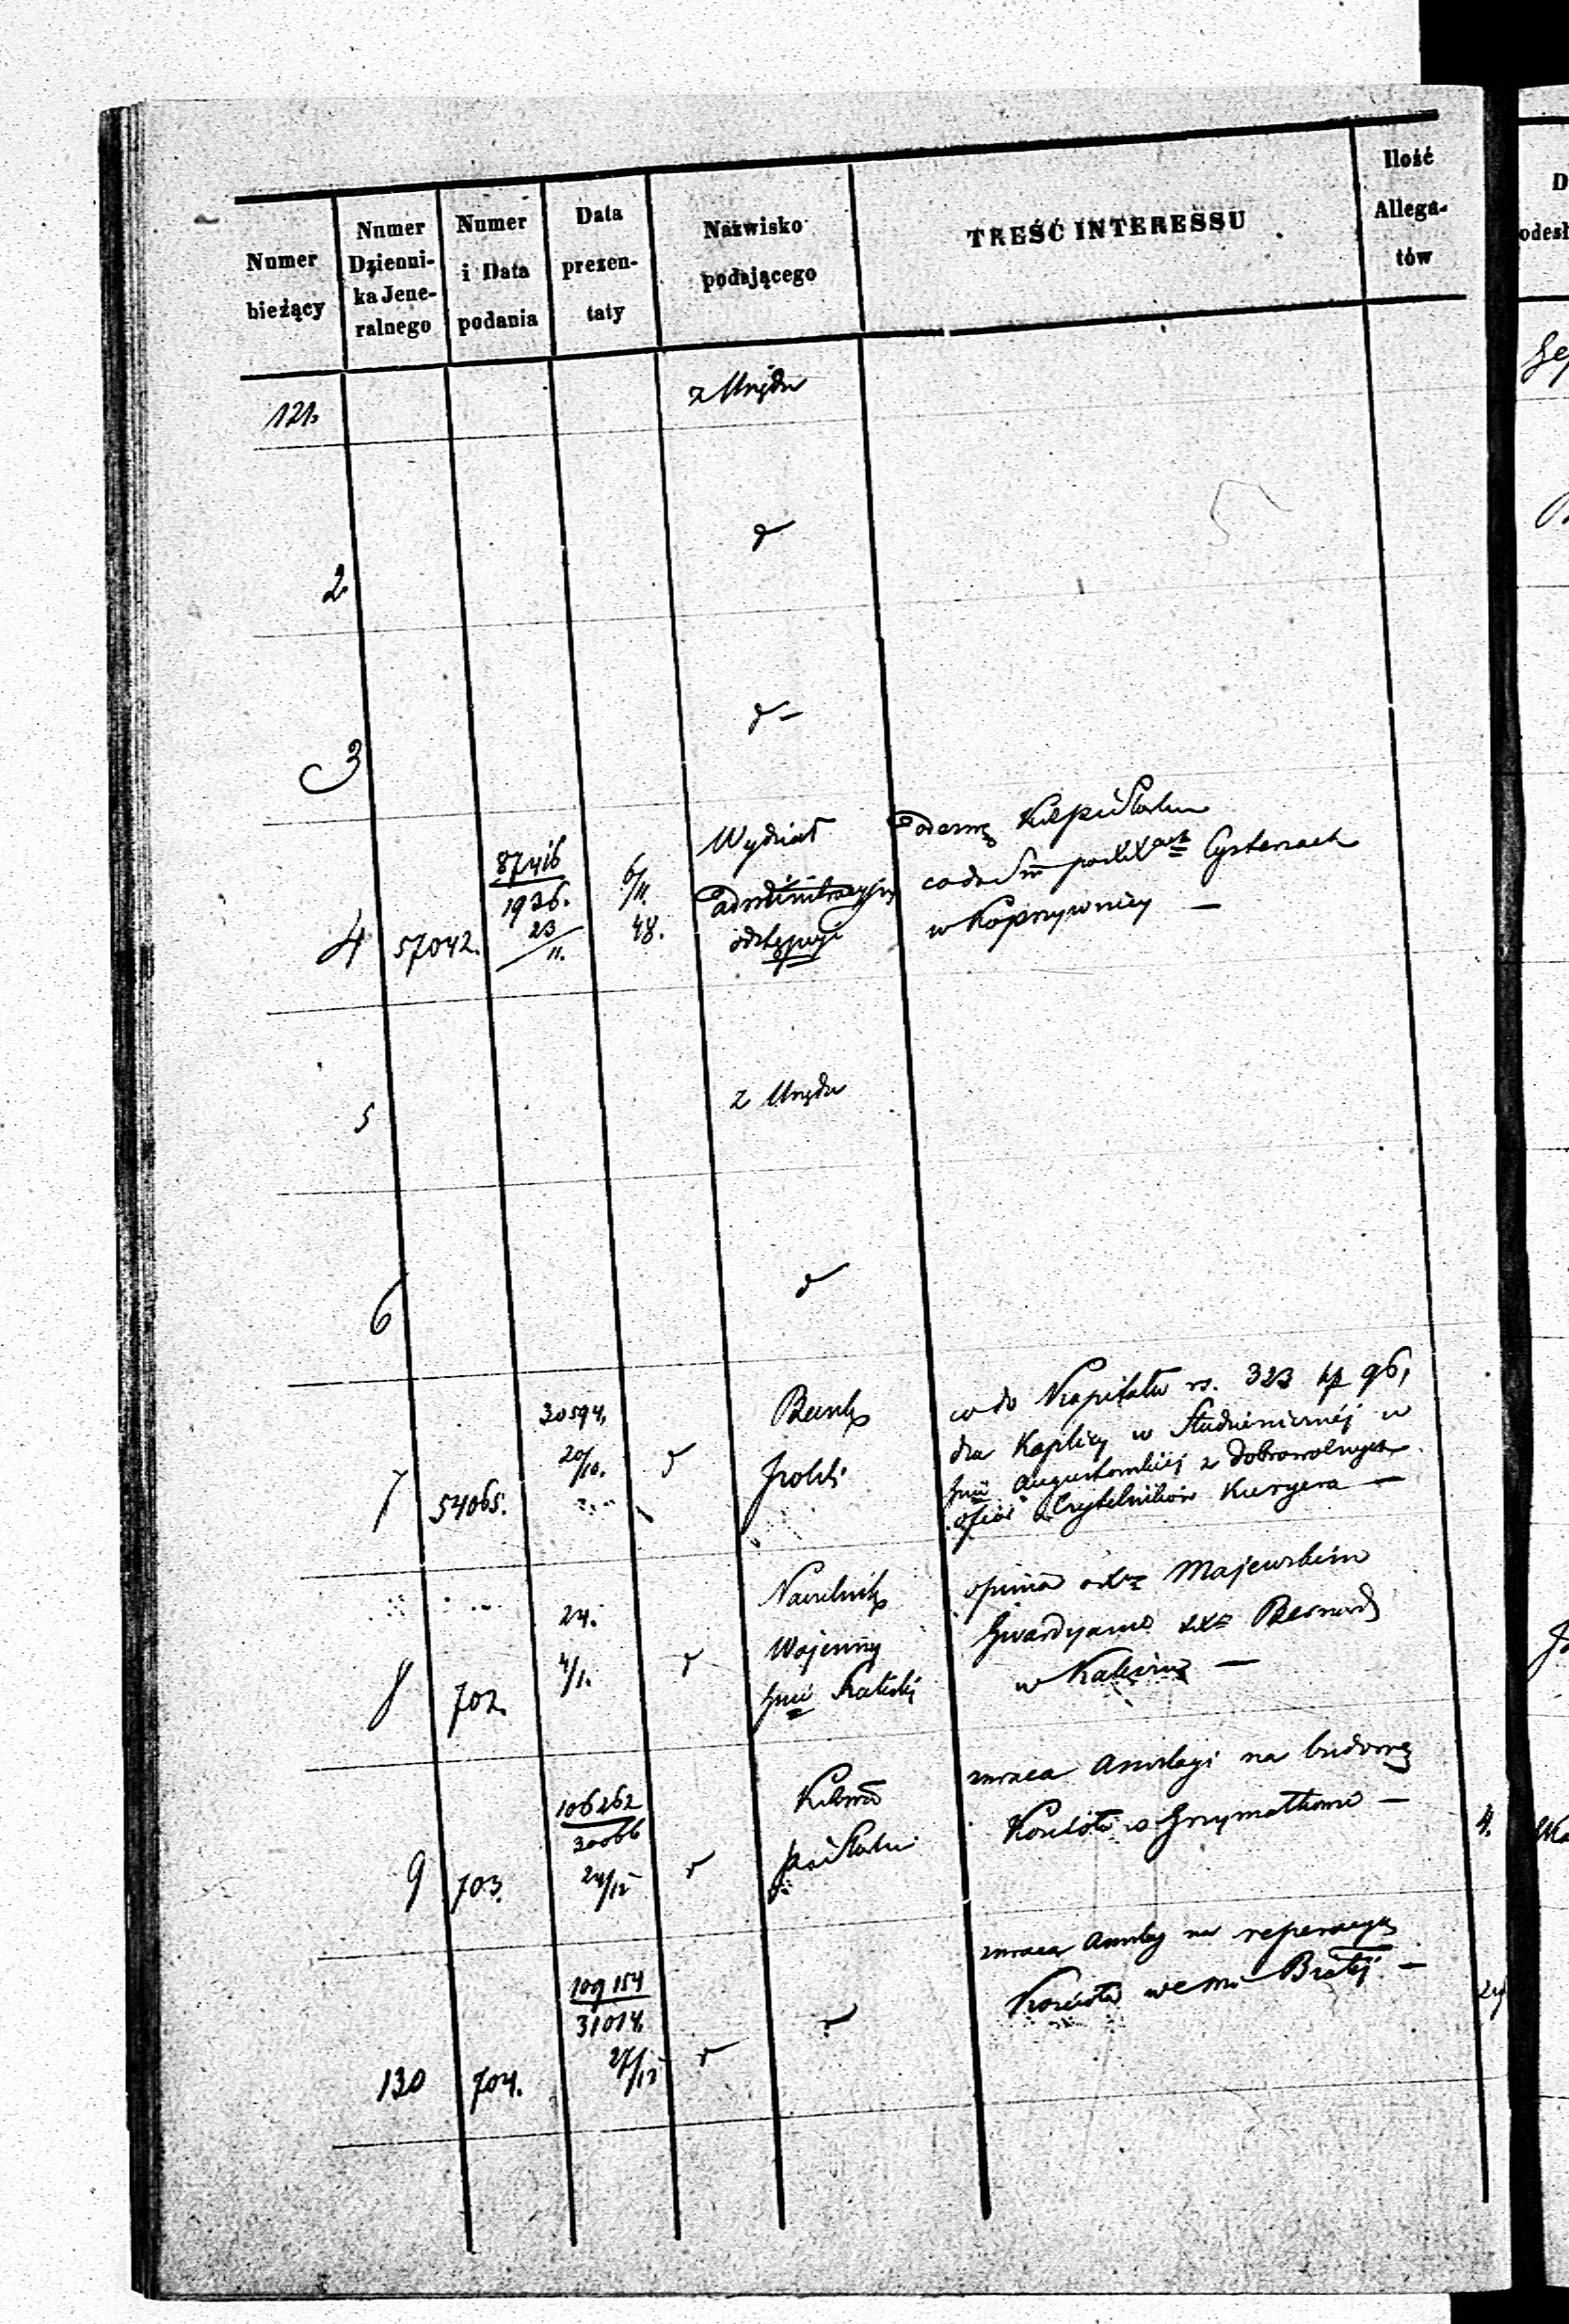 Numer
bieżący
Numer
Dzienni-
ka Jene-
ralnego
Numer
i Data
podania
Data
prezen-
taty
Nazwisko
podającego
TREŚĆ INTERESSU
Ilość
Allega-
tów
121.
z Urzędu
2
d
3
d –
4
57042.
87416
1936.
23
11.
6/11.
48.
Wydział
administracyjny
odstępuje
w Koprzywnicy —
5
z Urzędu
6
d
7
54065.
30594.
20/10.
d
Bank
Polski
co do Kapitału rs. 323 kp 96,
dla Kaplicy w Studzienicznéj w
Gnii Augustowskiéj z dobrowolnych
ofiar Czytelników Kuryera —
8
702.
24.
4/1.
d
Naczelnik
Wojenny
Gnii Kaliskiéj
opinia o Xdzu Majewskim
Gwardyanie XXów Bernard
w Kaliszu —
9
703.
106262
30066
24/12
d
zwraca Anszlagi na budowę
Kościoła w Grzymałkowie —
4.
130
704.
109154
31014.
27/12
d
d
zwraca Anszlag na reperacyą
Kościoła we wsi Biały —
24